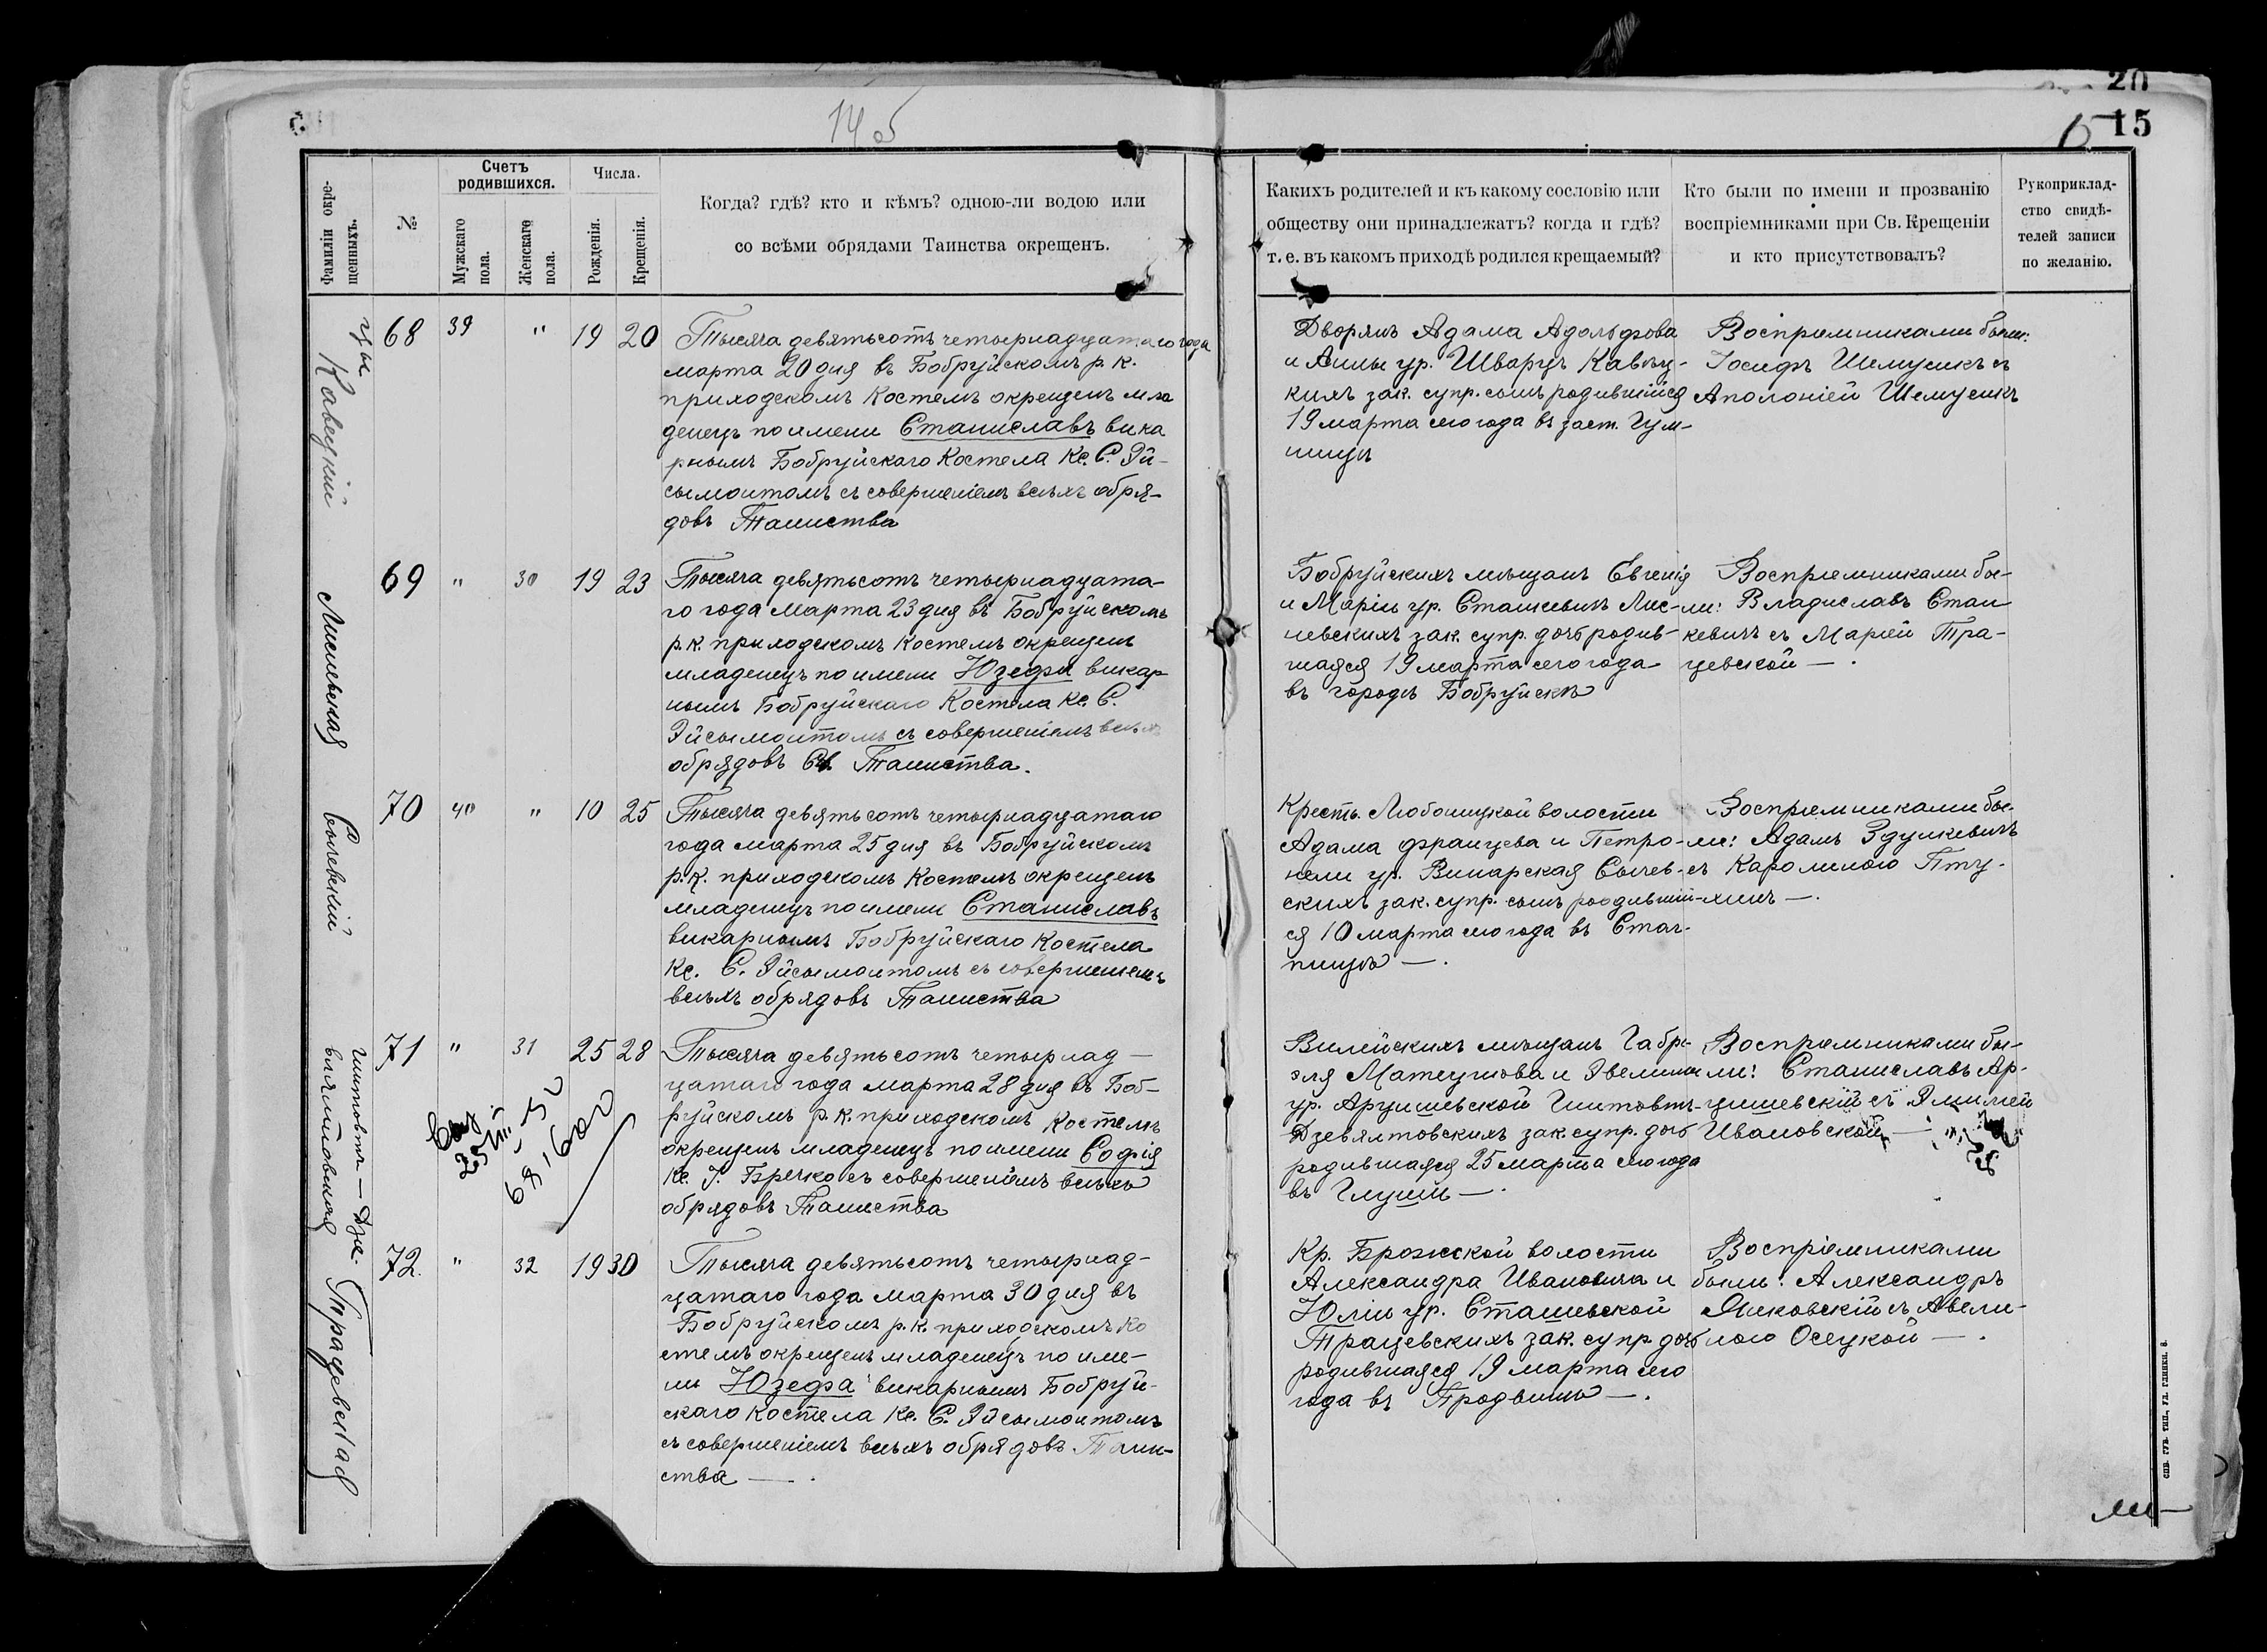 14об
20
15
15
Фамиліи окре-
щенныхъ.
№
Счетъ
родившихся.
Мужскаго
пола.
Женскаго
пола.
Числа.
Рожденія.
Крещенія.
Когда? гдѣ? кто и кѣмъ? одною-ли водою или
со всѣми обрядами Таинства окрещенъ.
Какихъ родителей и къ какому сословію или
обществу они принадлежатъ? когда и гдѣ?
т. е. въ какомъ приходѣ родился крещаемый?
Кто были по имени и прозванію
воспріемниками при Св. Крещеніи
и кто присутствовалъ?
Рукоприклад-
ство свидѣ-
телей записи
по желанію.
Кавецкій
68 39 " 19 20
Тысяча девятьсотъ четырнадцатаго года
марта 20 дня въ Бобруйскомъ р. к.
приходскомъ Костелѣ окрещенъ мла
денецъ по имени Станиславъ вика
рнымъ Бобруйскаго Костела Кс. С. Эй-
сымонтомъ съ совершеніемъ всѣхъ обря-
довъ Таинства
Дворянъ Адама Адольфова
и Анны ур. Шварцъ Кавец-
кихъ зак. супр. сынъ родившійся
19 марта сего года въ заст. Гум-
нищи
Воспріемниками были:
Іосифъ Шемушкъ съ
Аполоніей Шемушкъ
69 " 30 19 23
Тысяча девятьсотъ четырнадцата-
го года марта 23 дня въ Бобруйскомъ
р. к. приходскомъ Костелѣ окрещенъ
младенецъ по имени Юзефа викар
нымъ Бобруйскаго Костела Кс. С.
Эйсымонтомъ съ совершеніемъ всѣхъ
обрядовъ Св. Таинства.
Бобруйскихъ мѣщанъ Евгенія
и Маріи ур. Сташкевичъ Лис-
невскихъ зак. супр. дочь родив-
шаяся 19 марта сего года
въ городѣ Бобруйскѣ
Воспріемниками бы-
ли: Владиславъ Стан
кевичъ съ Маріей Тра-
цевской — .
Сычевскій
70 40 " 10 25
Тысяча девятьсотъ четырнадцатаго
года марта 25 дня въ Бобруйскомъ
р. к. приходскомъ Костелѣ окрещенъ
младенецъ по имени Станиславъ
викарнымъ Бобруйскаго Костела
Кс. С. Эйсымонтомъ съ совершеніемъ
всѣхъ обрядовъ Таинства
Крестъ. Любоницкой волости
Адама Францева и Петро-
нели ур. Винарская Сычев-
скихъ зак. супр. сынъ родившій-
ся 10 марта сего года въ
Воспріемниками бы-
ли: Адамъ Здулкевичъ
съ Каролиною Пту-
хинъ — .
Гинтовтъ — Дзе-
вялтовская
71 " 31 25 28
Тысяча девятьсотъ четырнад —
цатаго года марта 28 дня въ Боб-
руйскомъ р. к. приходскомъ Костелѣ
окрещенъ младенецъ по имени Софія
Кс. Бречко съ совершеніемъ всѣхъ
обрядовъ Таинства
Вилейскихъ мѣщанъ Габрі-
эля Матеушова и Эвелины
ур. Арцишевской Гинтовтъ-
Дзевялтовскихъ зак. супр. дочь
родившаяся 25 марта сего года
въ Глуши — .
Воспріемниками бы-
ли: Станиславъ Ар-
цишевскій съ Эмиліей
Ивановской —
Трацевская
72. " 32 19 30
Тысяча девятьсотъ четырнад-
цатаго года марта 30 дня въ
Бобруйскомъ р. к. приходскомъ Ко
стелѣ окрещенъ младенецъ по име-
ни Юзефа викарнымъ Бобруй-
скаго Костела Кс. С. Эйсымонтомъ
съ совершеніемъ всѣхъ обрядовъ Таин-
ства — .
Кр. Брожской волости
Александра Ивановича и
Юліи ур. Сташевской
Трацевскихъ зак. супр. дочь
родившаяся 19 марта сего
года въ Продвинѣ — .
Воспріемниками
были: Александръ
Янковскій съ Авели-
ною Осецкой — .
СПВ. ГУБ. ТИП., УЛ. ГЛИНКИ, 8.